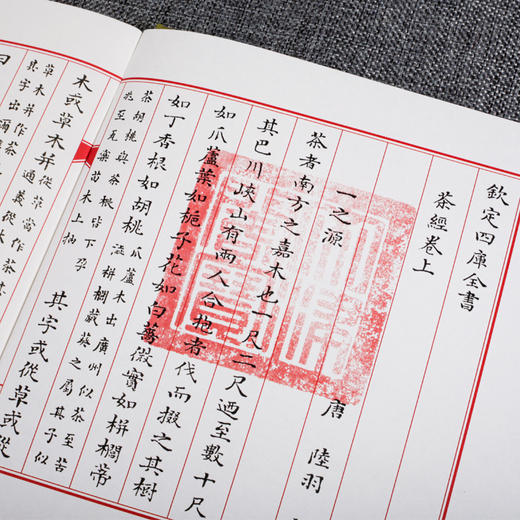 欽定四庫全書
茶經卷上
唐 陸羽
一之源
茶者南方之嘉木也一尺二尺迺至數十尺
其巴川峽山有兩人合抱者伐而掇之其樹
如瓜蘆葉如梔子花如白薔薇實如栟櫚蒂
如丁香根如胡桃
瓜蘆木出廣州似茶至苦
澁栟櫚蒲葵之屬其子似
茶胡桃與茶根皆下孕
兆至瓦礫苗木上抽
其字或從草或從
木或草木并
從草當作茶其
草木并作荼
其字出爾雅